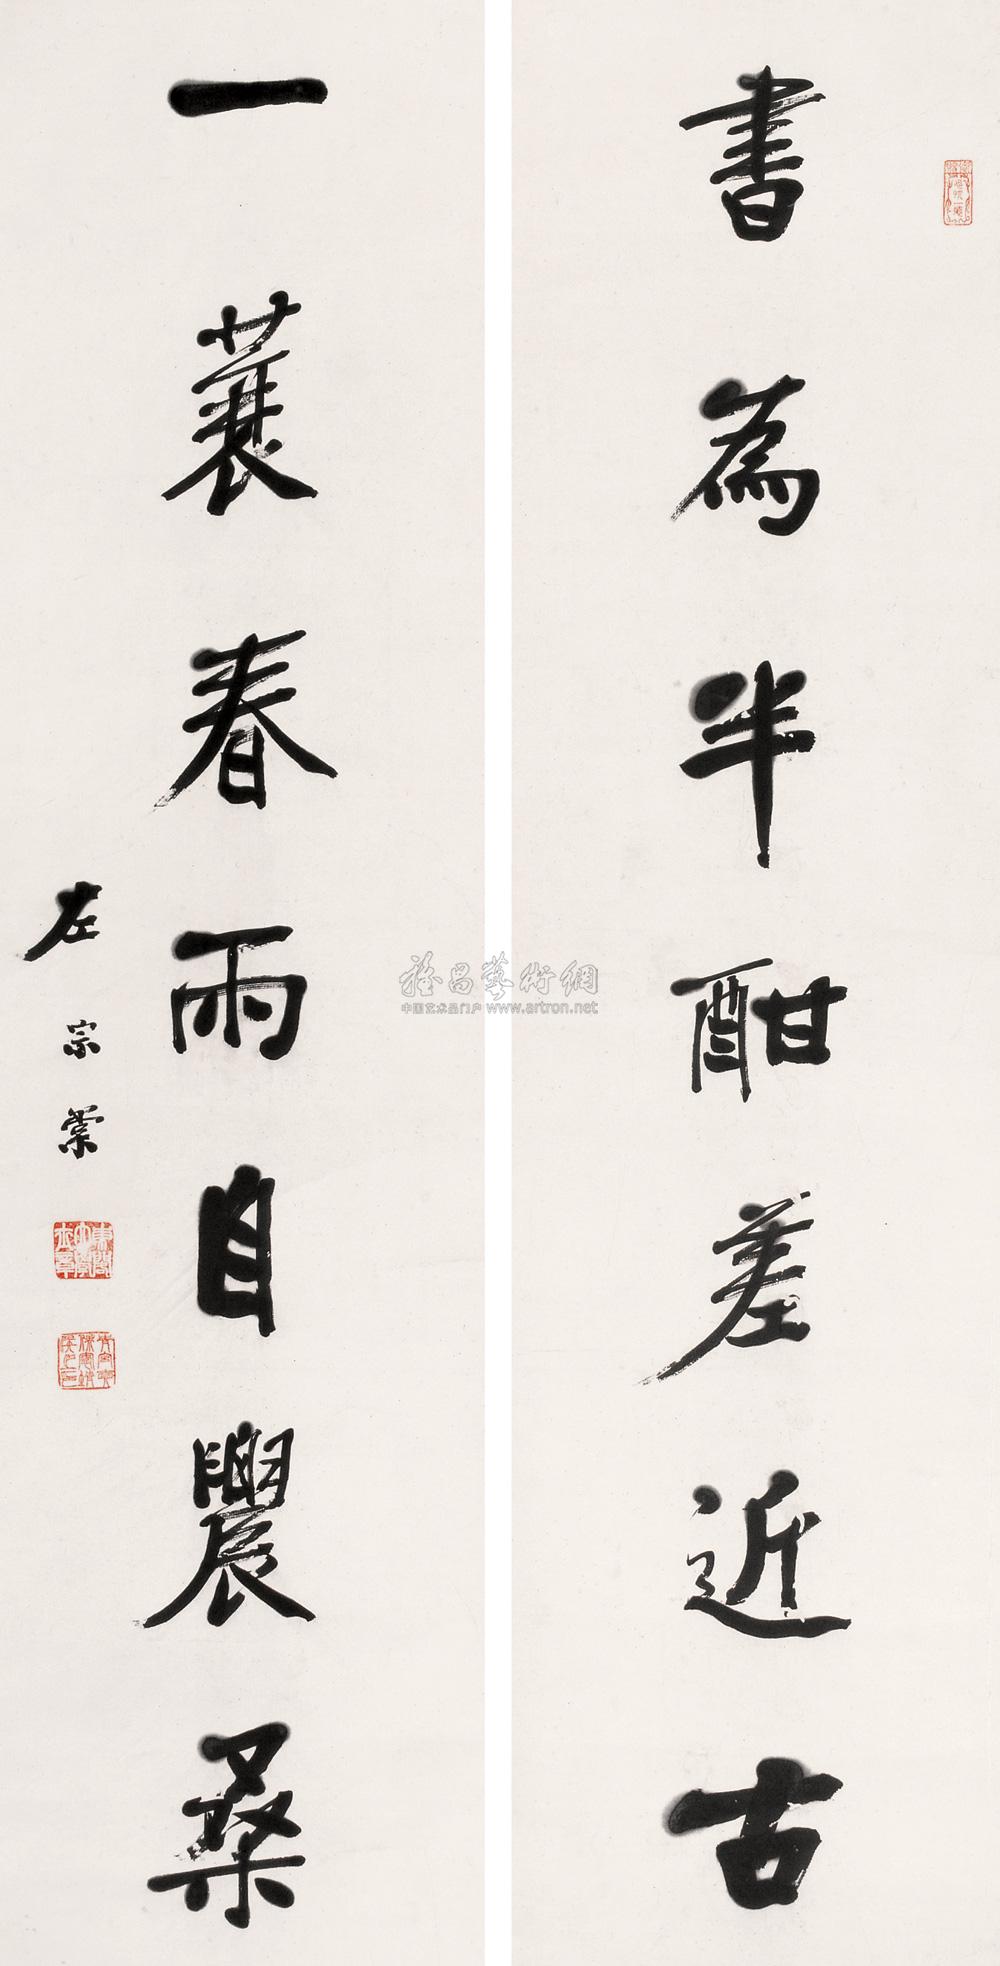 書為半酣差近古
一蓑春雨自農桑
左宗棠
雅昌藝術網
中国艺术品门户 www.artron.net